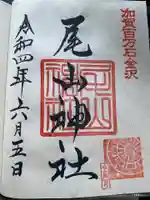 加賀百万石金沢
尾山神社
令和四年六月五日